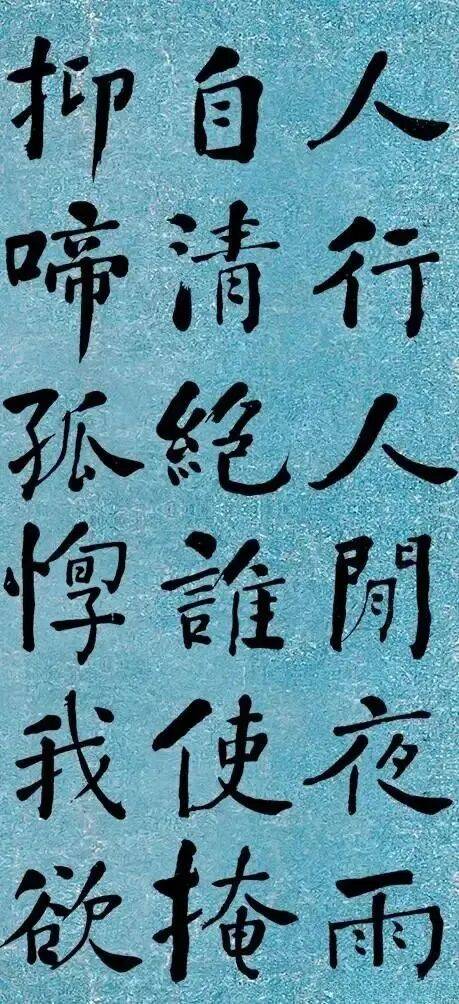 人行人閒夜雨
自清絶誰使掩
抑啼孤惸我欲